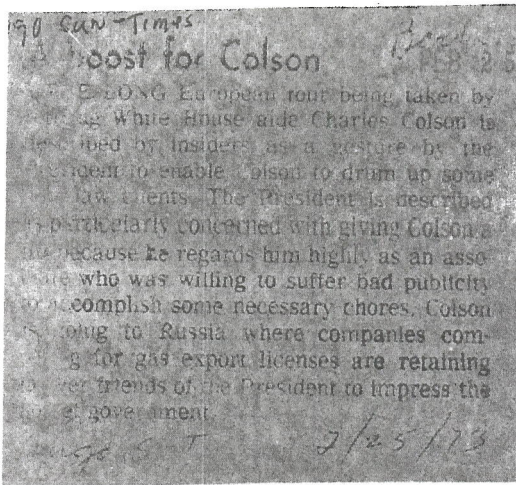 Sun-Times
oost for Colson
FEB 25
E-LONG European tour being taken by
White House aide Charles Colson is
by insiders as a gesture by the
to enable Colson to drum up some
law clients. The President is described
particularly concerned with giving Colson a
because he regards him highly as an asso-
who was willing to suffer bad publicity
accomplish some necessary chores. Colson
going to Russia where companies com-
g for gas export licenses are retaining
friends of the President to impress the
government.
2/25/73